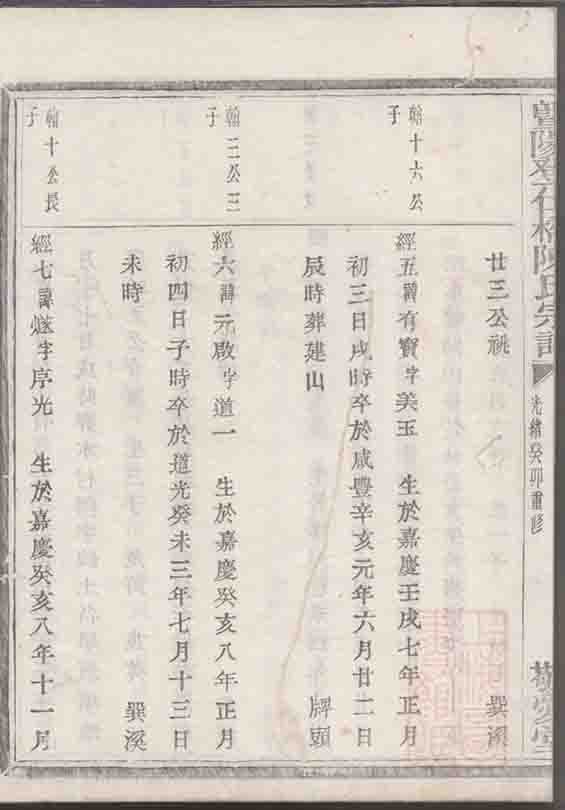 光緒癸卯重修
廿三公祧 巽溪
翰十六公
子
經五諱有寶字美玉 生於嘉慶壬戌七年正月
初三日戌時卒於咸豐辛亥元年六月廿二日
辰時葬建山 牌頭
翰三公三
子
經六諱元啟字道一 生於嘉慶癸亥八年正月
初四日子時卒於道光癸未三年七月十三日
未時 巽溪
翰十公長
子
經七諱燧字序光 生於嘉慶癸亥八年十一月